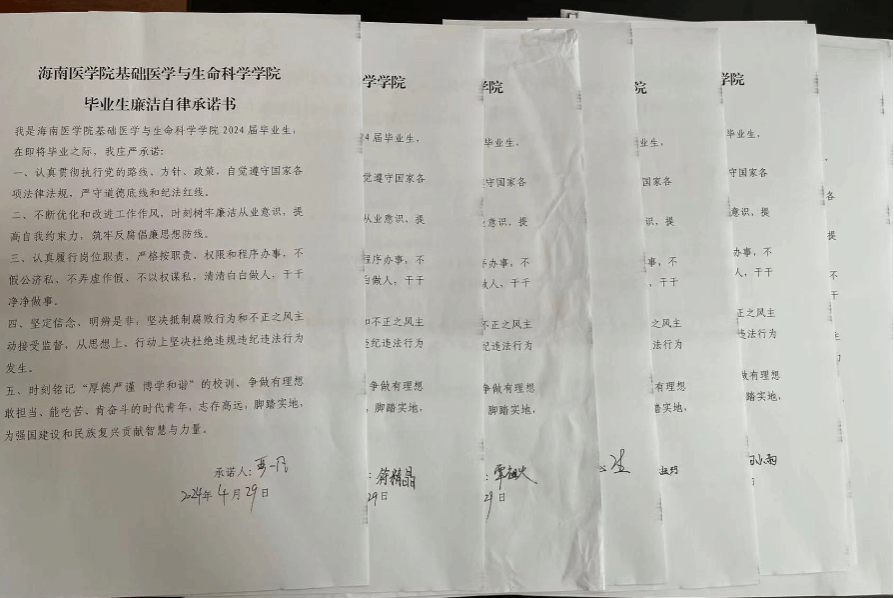 海南医学院基础医学与生命科学学院
毕业生廉洁自律承诺书
我是海南医学院基础医学与生命科学学院 2024 届毕业生,
在即将毕业之际, 我庄严承诺:
一、认真贯彻执行党的路线、方针、政策, 自觉遵守国家各
项法律法规, 严守道德底线和纪法红线。
二、不断优化和改进工作作风, 时刻树牢廉洁从业意识, 提
高自我约束力, 筑牢反腐倡廉思想防线。
三、认真履行岗位职责, 严格按职责、权限和程序办事, 不
假公济私、不弄虚作假、不以权谋私, 清清白白做人, 干干
净净做事。
四、坚定信念、明辨是非, 坚决抵制腐败行为和不正之风主
动接受监督, 从思想上、行动上坚决杜绝违规违纪违法行为
发生。
五、时刻铭记“厚德严谨 博学和谐”的校训、争做有理想
敢担当, 能吃苦、肯奋斗的时代青年, 志存高远, 脚踏实地,
为强国建设和民族复兴贡献智慧与力量。
承诺人:
2024年4月29日
学学院
24 届毕业生,
觉遵守国家各
从业意识, 提
程序办事, 不
白做人, 干干
和不正之风主
违纪违法行为
争做有理想
, 脚踏实地,
: 符精晶
29日
学院
毕业生,
守国家各
意识, 提
办事, 不
做人, 干干
不正之风主
纪违法行为
争做有理想
脚踏实地,
:
29日
院
业生,
国家各
识, 提
事, 不
, 干干
之风主
法行为
有理想
踏实地,
学院
毕业生,
守国家各
意识, 提
办事, 不
人, 干干
之风主
法行为
有理想
脚踏实地,
日
各
提
不
干
主